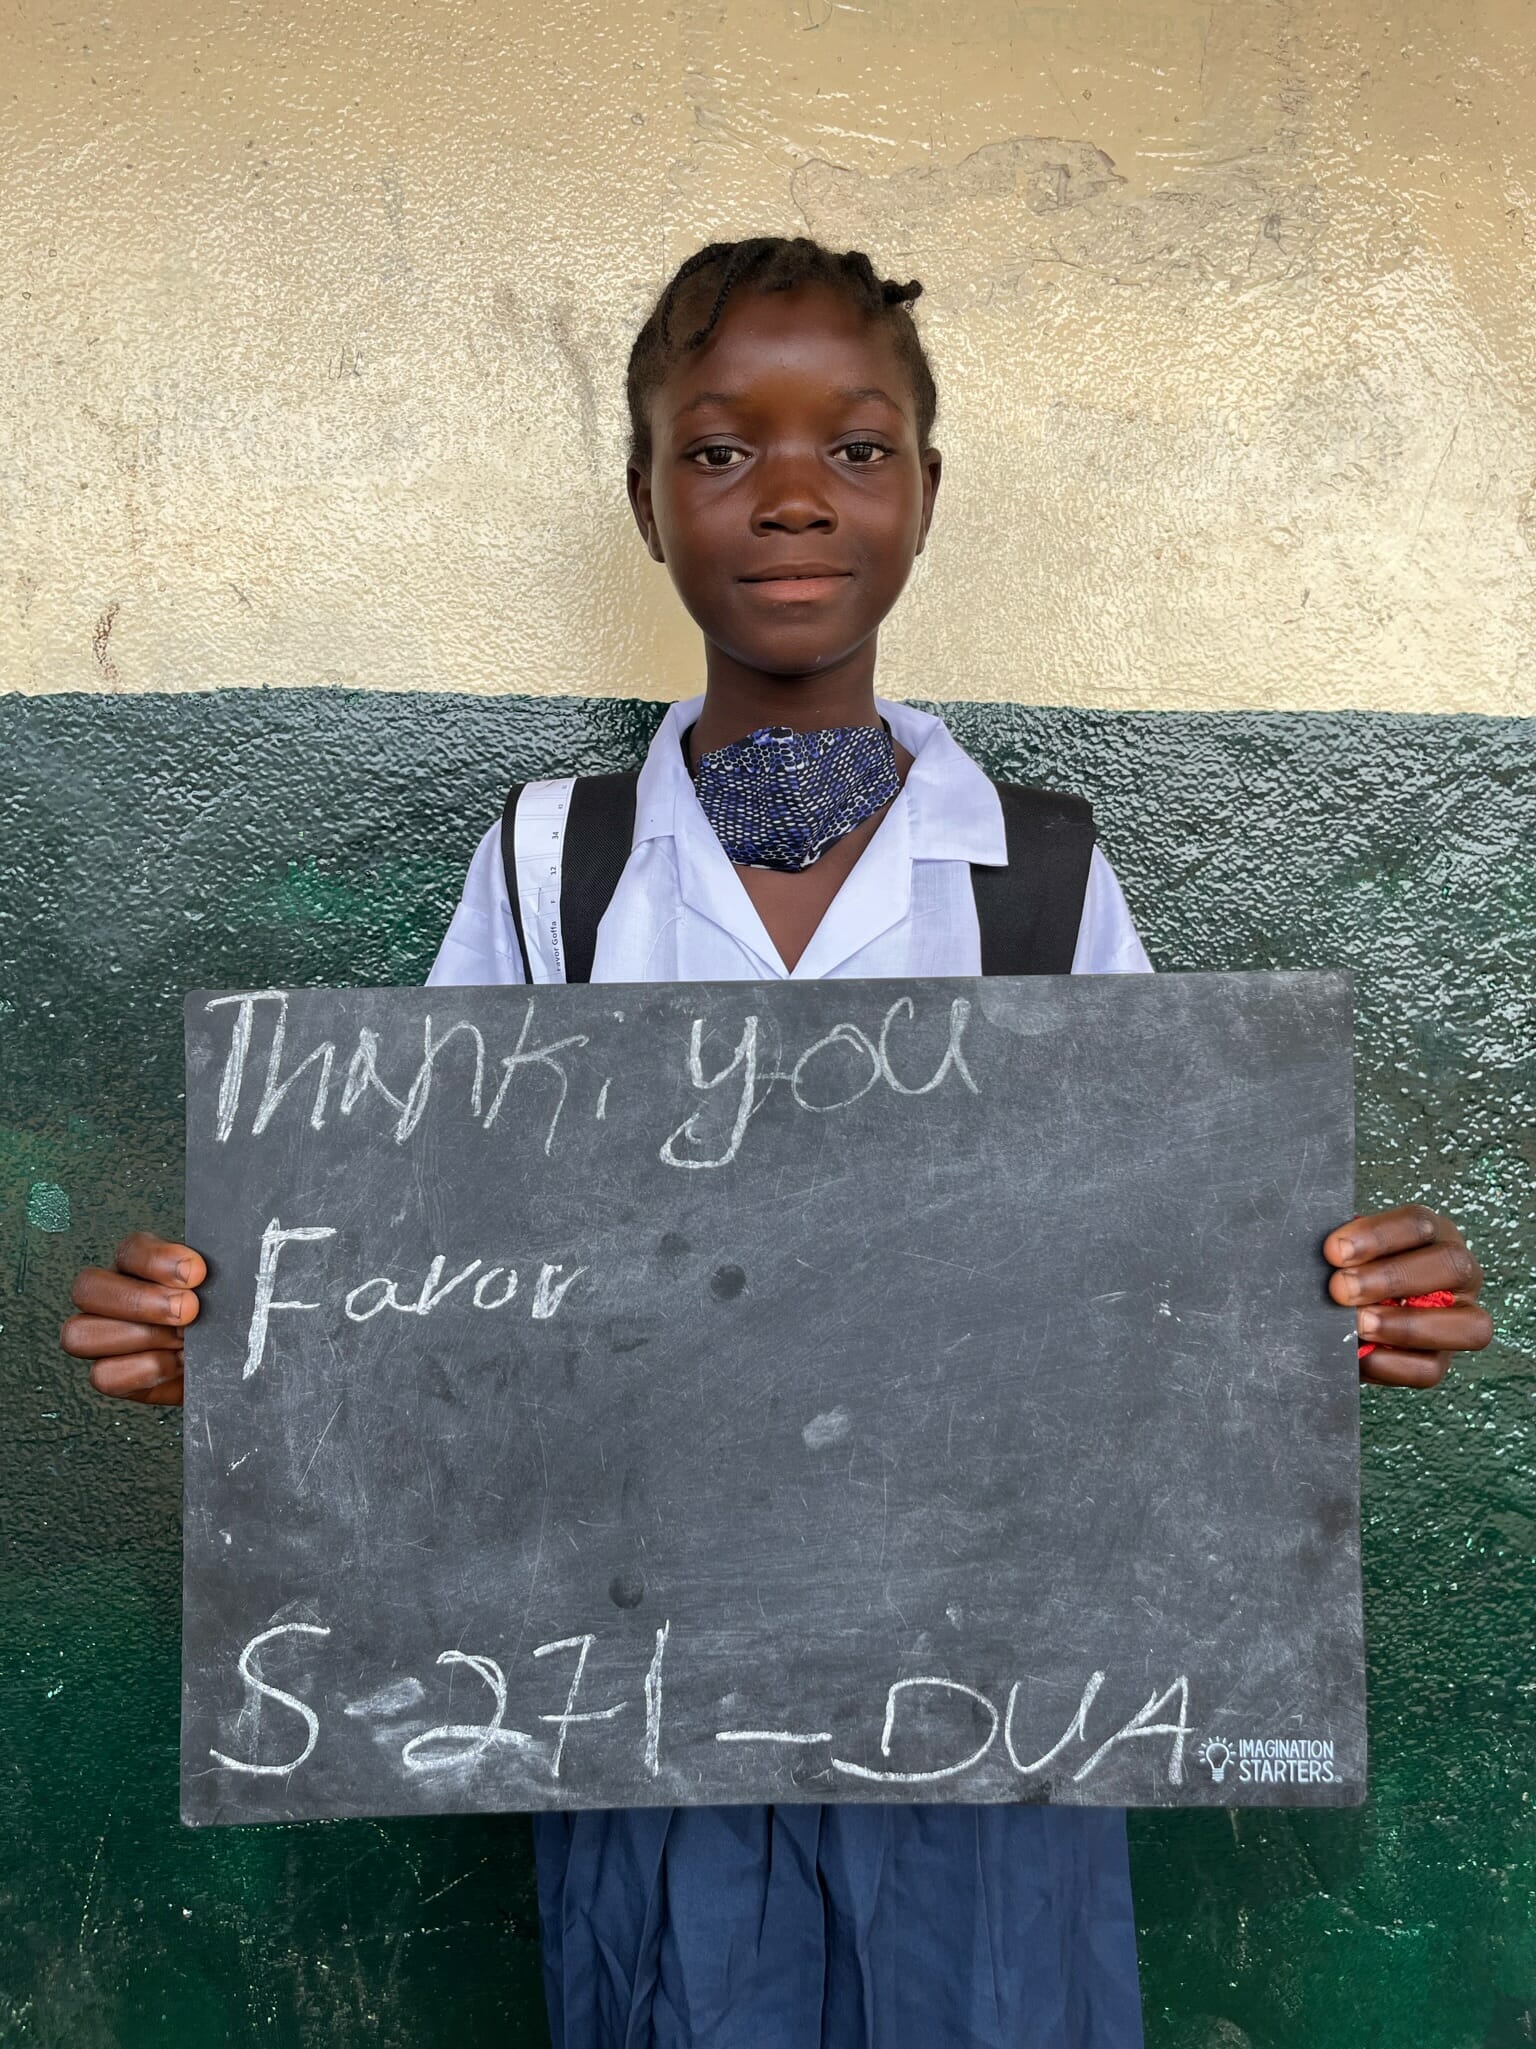 Favor Goffa F 12 34
Thank, you
Favor
S-271 – DUA
IMAGINATION
STARTERS